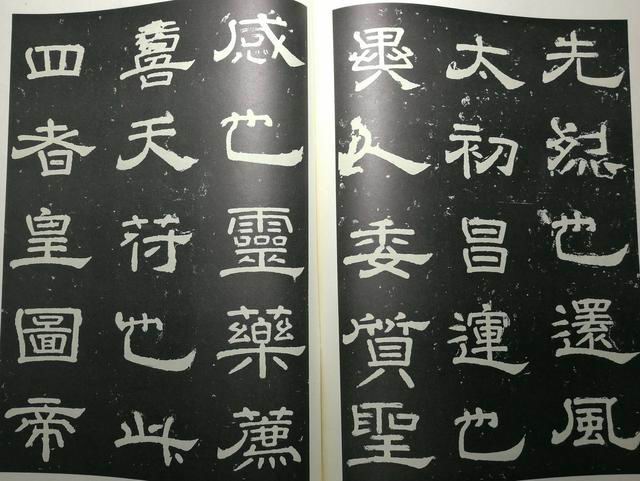 先烈也還風
太初昌運也
異人委質聖
感也靈藥薦
喜天符也此
四者皇圖帝